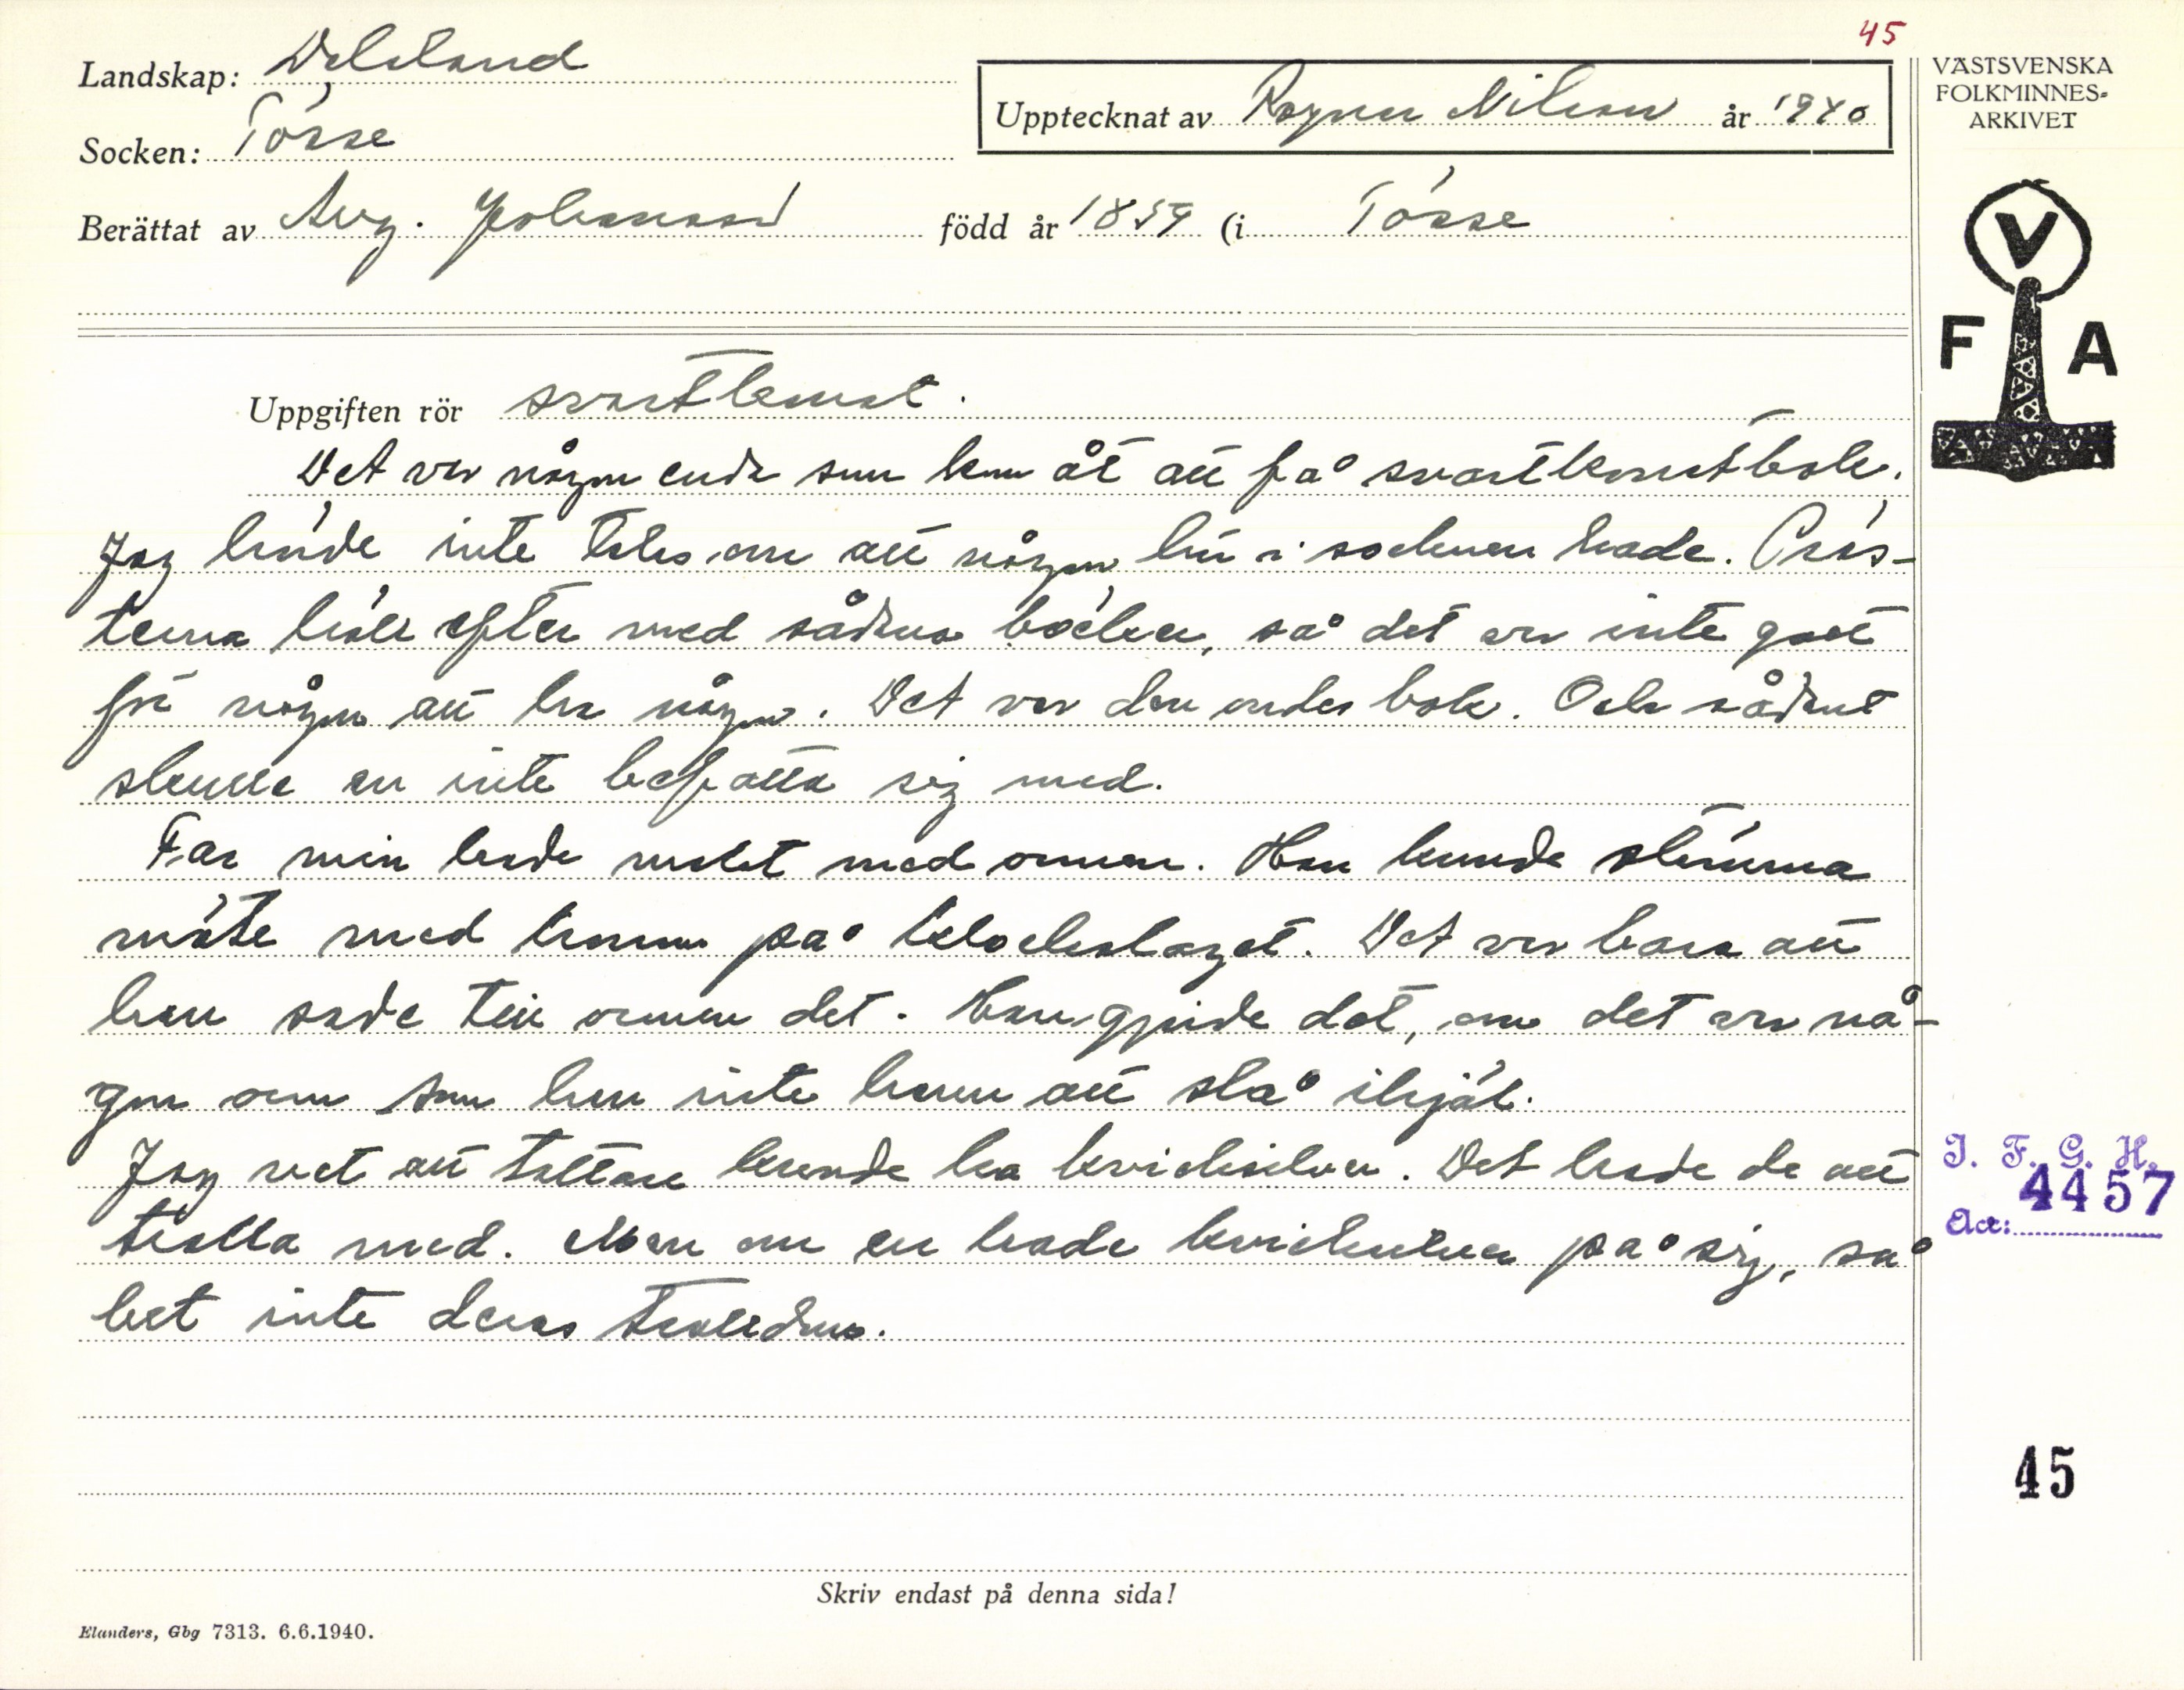 45
Landskap: Dalsland
Socken: Tösse
Upptecknat av Ragnar Nilsson år 1940
Berättat av Aug. Johansson född år 1859 (i Tösse
VÄSTSVENSKA
FOLKMINNES-
ARKIVET
V
F A
Uppgiften rör svartkonst.
Det var någon enda som kom åt att få svartkonstbok.
Jag hörde inte talas om att någon här i socknen hade. Präs-
terna höll efter med sådana böcker, så det var inte gott
för någon att ha någon. Det var den ondes bok. Och sådant
skulle en inte befatta sig med.
Far min hade makt med ormen. Han kunde stämma
möte med honom på klockslaget. Det var bara att
han sade till ormen det. Han gjorde det, om det var nå-
gon orm som han inte hann att slå ihjäl.
Jag vet att tattare kunde ha kvicksilver. Det hade de att
trolla med. Men om en hade kvicksilver på sig, så
bet inte deras trolldom.
I. F. G. H.
4457
Acc:
45
Skriv endast på denna sida!
Elanders, Gbg 7313. 6.6.1940.